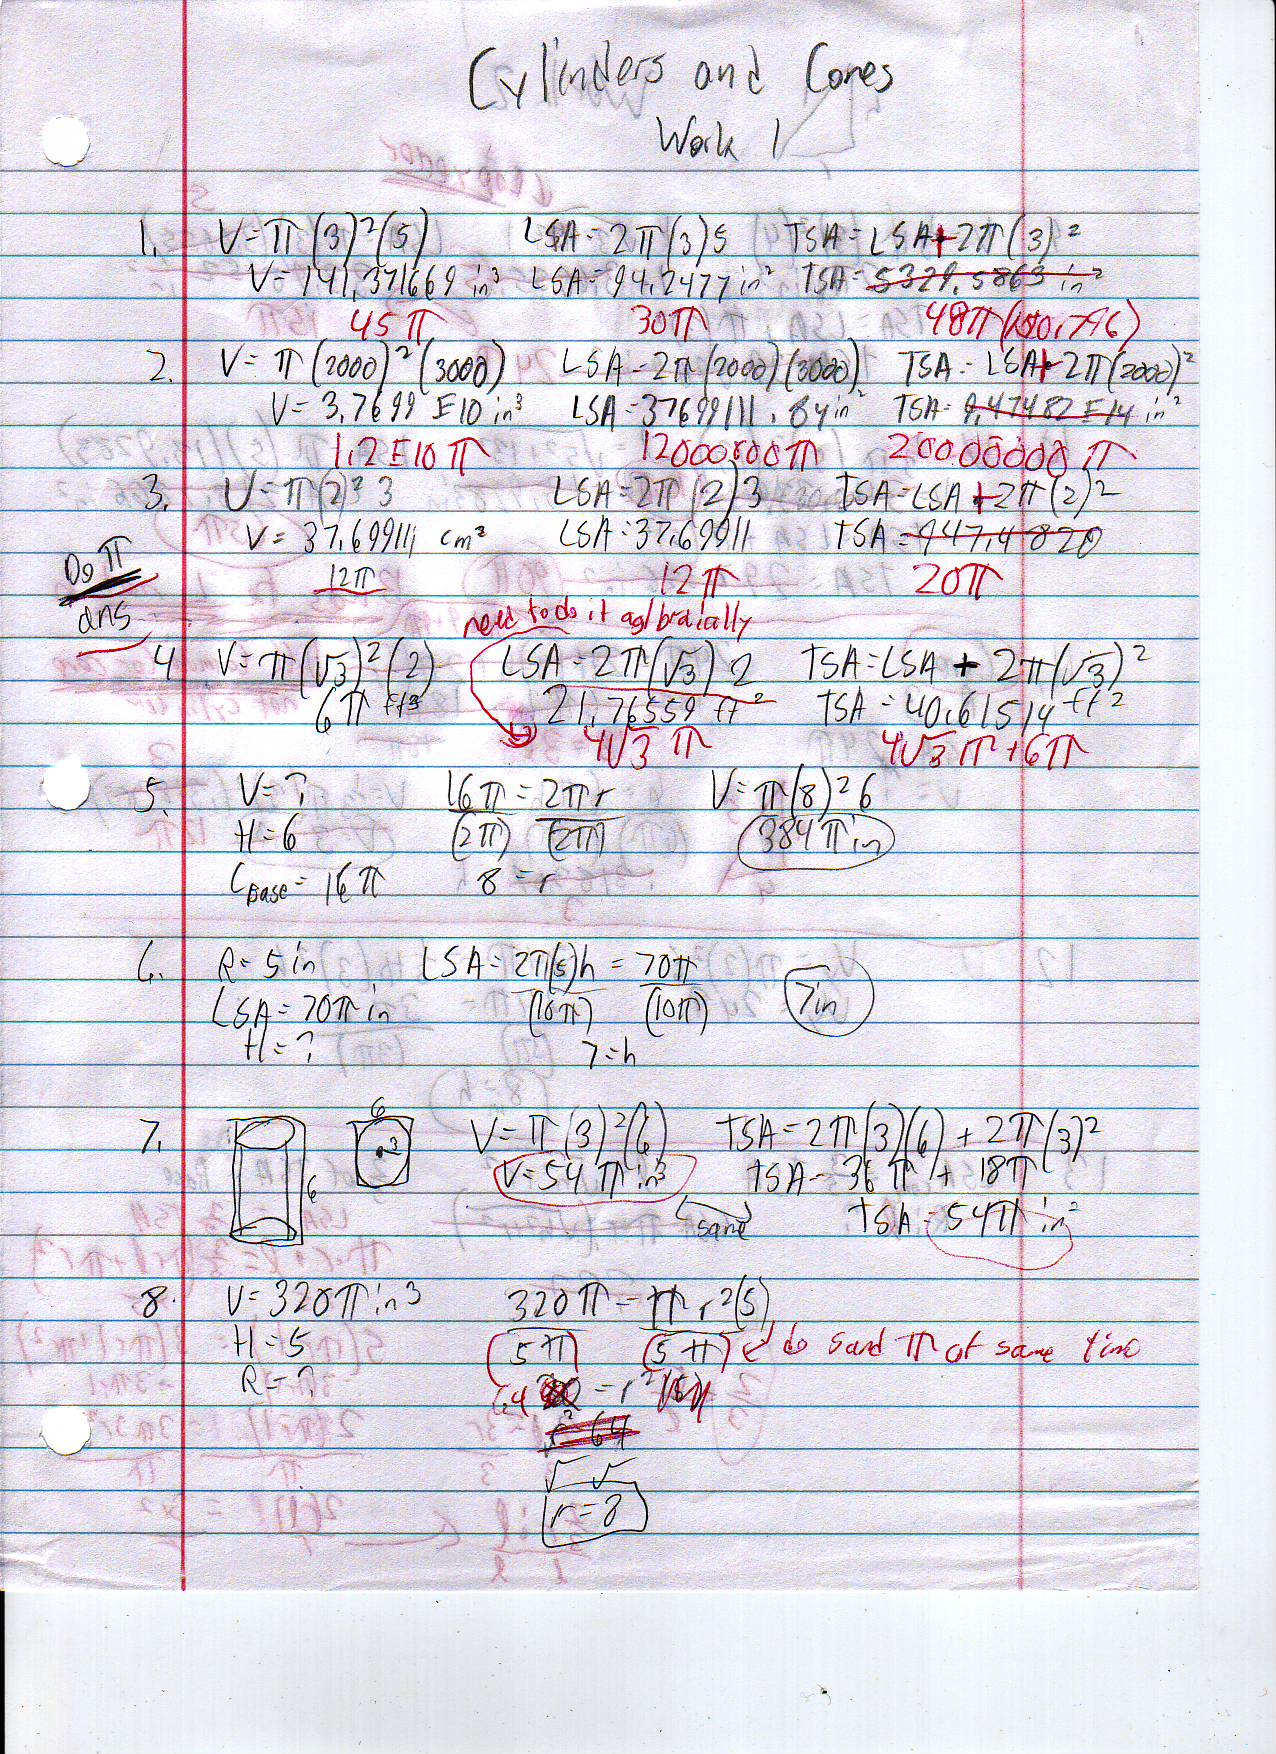 Cylinders and Cones
Work 1
1. V=π(3)²(5) LSA=2π(3)5 TSA=LSA+2π(3)²
V=141,371669 in³ LSA=94.2477 in² TSA=5329.5863 in²
45π 30π 48π
2. V=π(2000)²(3000) LSA=2π(2000)(3000) TSA=LSA+2π(2000)²
V=3.7699 E10 in³ LSA=37699111.84 in² TSA=9.47482 E14 in²
1.2E10π 12000000π 20000000π
3. V=π(2)²3 LSA=2π(2)3 TSA=LSA+2π(2)²
V=37.69911 cm³ LSA=37.69911 TSA=947.4820
Do π
12π 12π 20π
ans
need to do it aglbraically
4 V=π(√3)²(2) LSA=2π(√3)2 TSA=LSA+2π(√3)²
6π ft³ 21.76559 ft² TSA=40.61514 ft²
4√3 π 4√3 π+6π
5. V=? 16π=2πr V=π(8)²6
H=6 (2π) (2π) 384π in
Cbase=16π 8=r
6. R=5in LSA=2π(5)h=70π 7in
LSA=70π in (10π) (10π)
H=? 7=h
7. 6 V=π(3)²(6) TSA=2π(3)(6)+2π(3)²
3 6 V=54π in³ TSA=36π+18π
same TSA=54π in²
8. V=320π in³ 320π=πr²(5)
H=5 5π (5π) do 5 and π at same time
R=? 64 =r²
r² 64
√ √
r=8